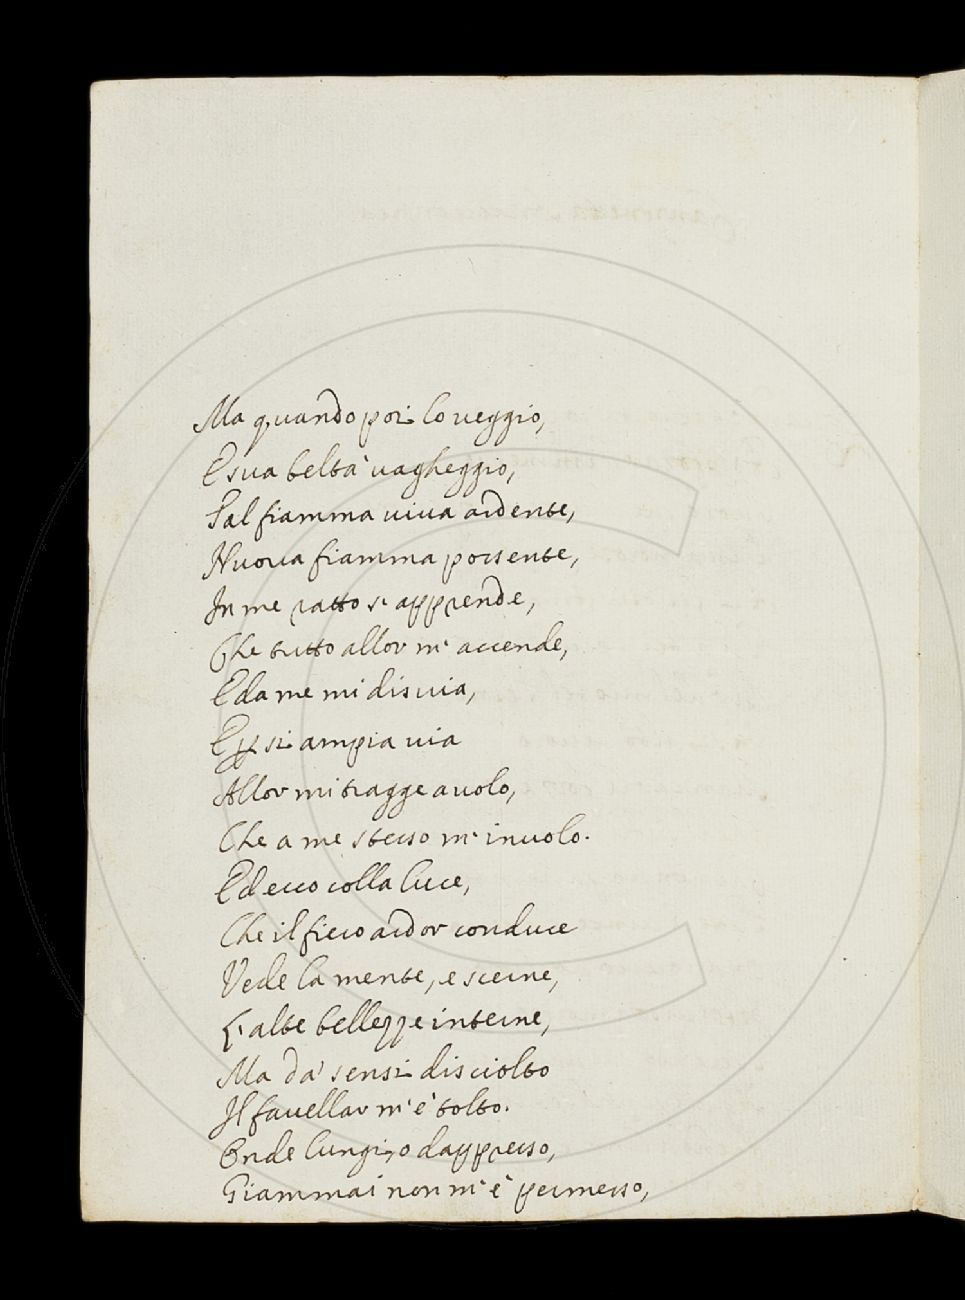 Ma quando poi lo veggio,
E sua beltà vagheggio,
Tal fiamma viva ardente,
Nuova fiamma possente,
In me ratto si apprende,
Che tutto allor m'accende,
E da me mi disvia,
E p si ampia via
Allor mi tragge a volo,
Che a me stesso m'involo.
Ed ecco colla luce,
Che il fiero ardor conduce
Vede la mente, e scerne,
L'alte bellezze interne,
Ma da' sensi disciolto
Il favellar m'è tolto.
Onde lungi, o dappresso,
Giammai non m'è permesso,